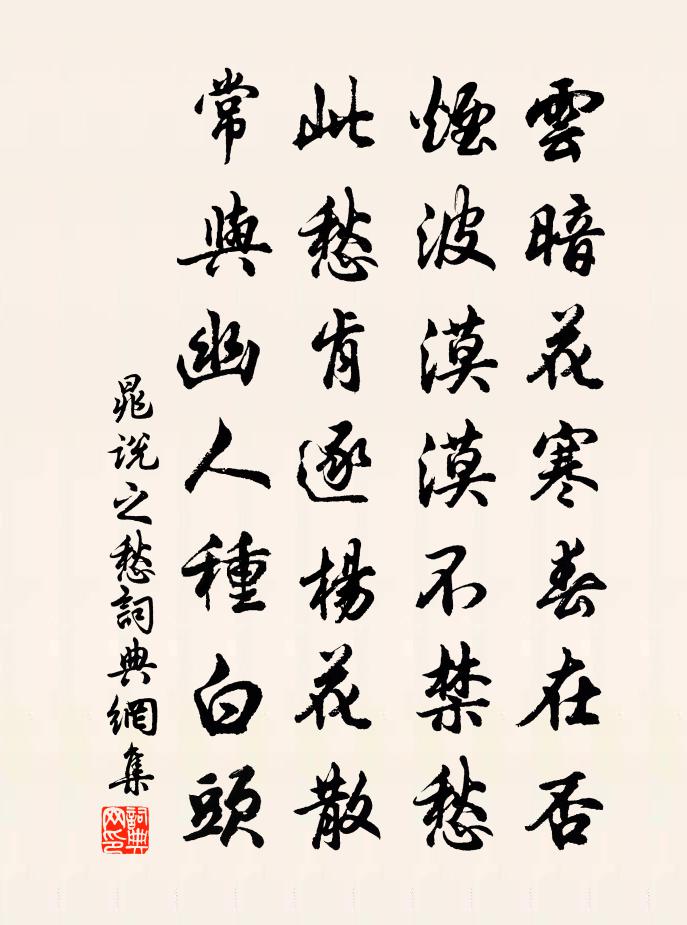 雲暗花寒春在否
煙波漠漠不禁愁
此愁肯逐楊花散
常與幽人種白頭
晁說之愁詞典網集
詞典網印